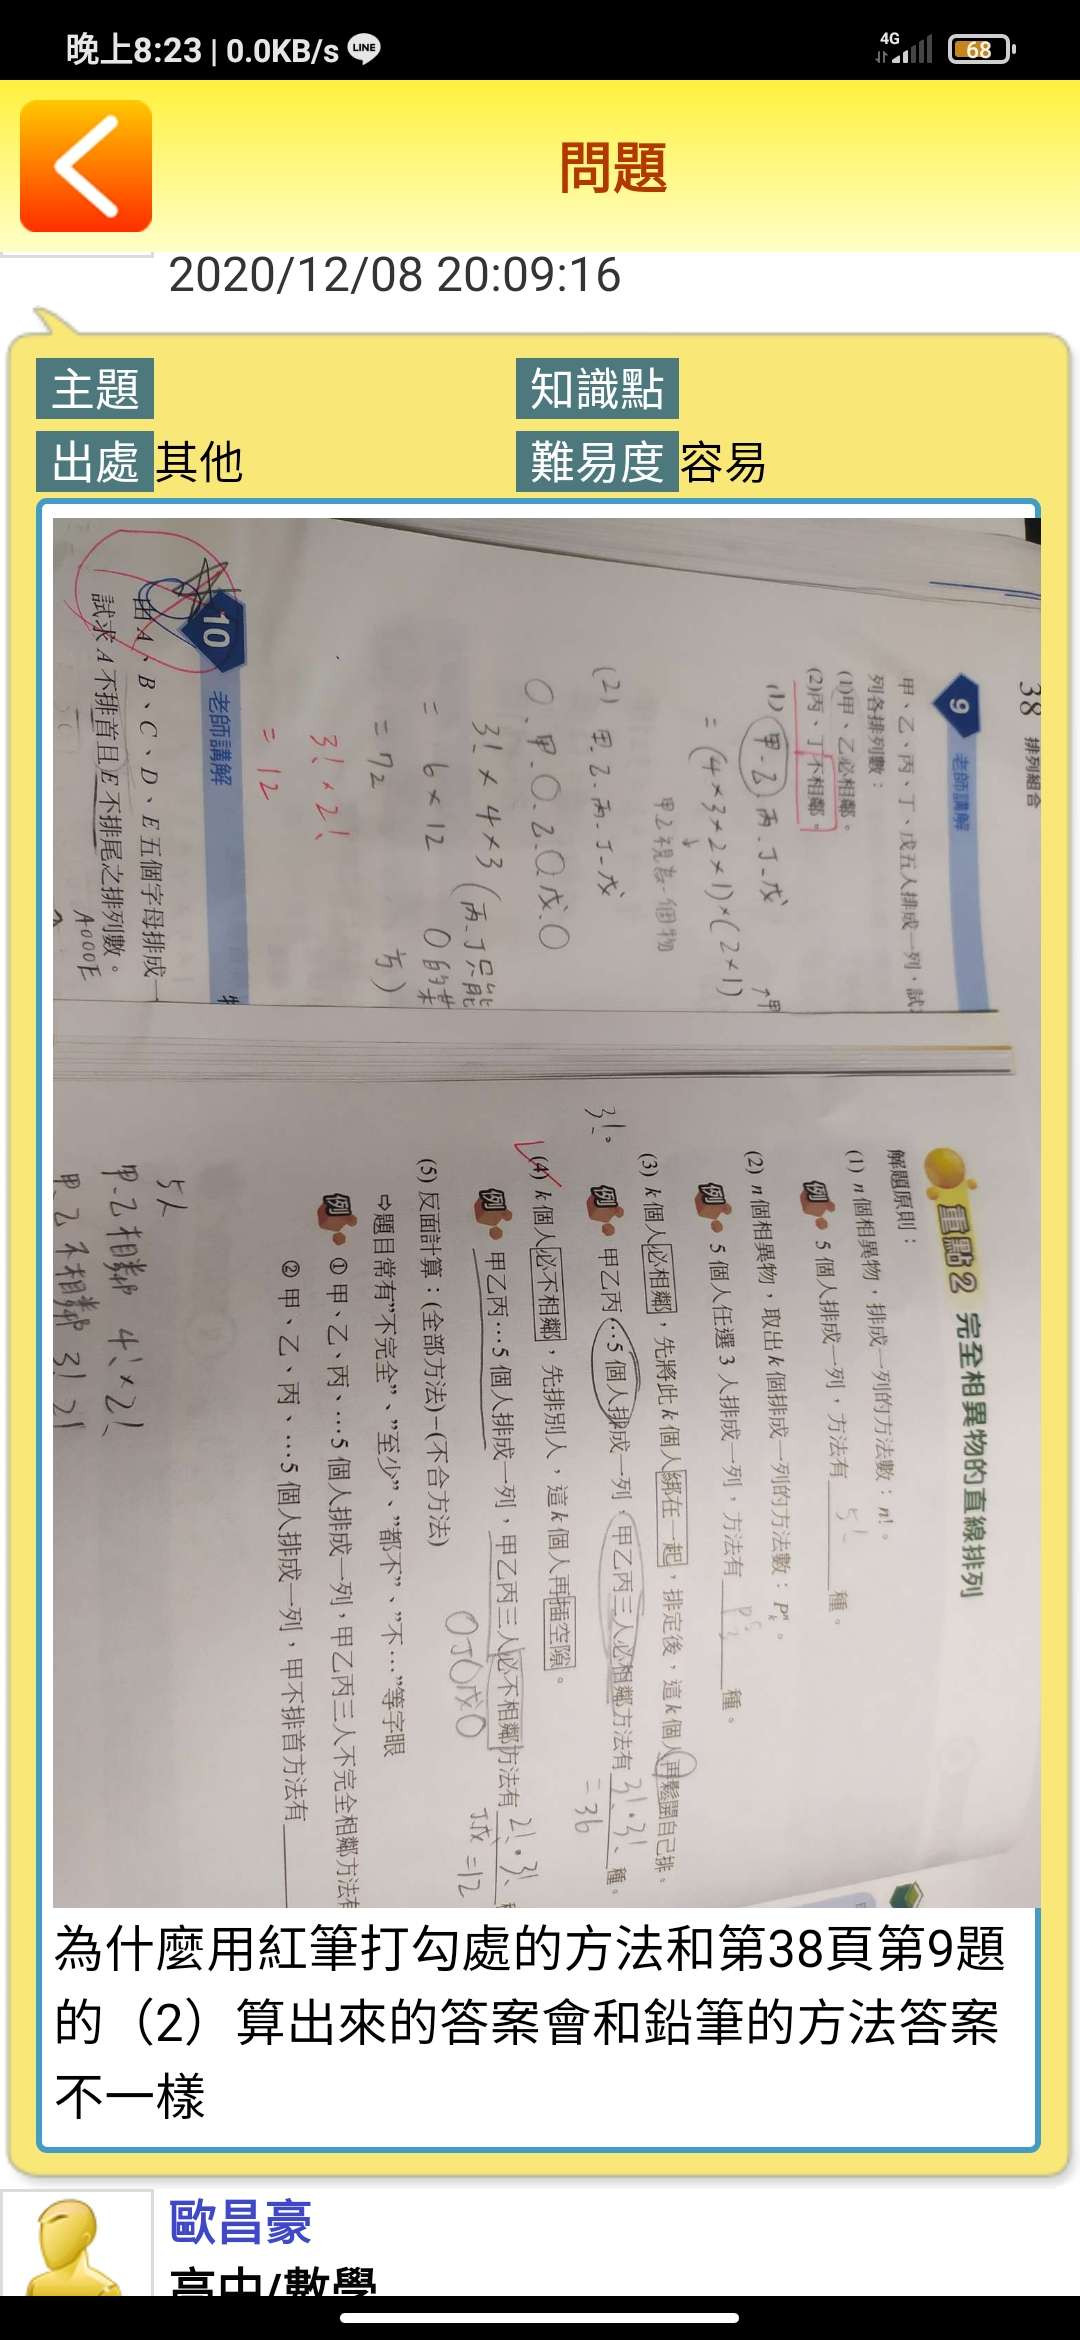 晚上8:23 | 0.0KB/s LINE
4G 68
問題
2020/12/08 20:09:16
主題
知識點
出處 其他
難易度 容易
38 排列組合
9 老師講解
甲、乙、丙、丁、戊五人排成一列,試
列各排列數:
(1)甲、乙必相鄰。
(2)丙、丁不相鄰。
(1) 甲.乙.丙.丁.戊
= (4×3×2×1)×(2×1)
甲乙視為一個物
(2) 甲.乙.丙.丁.戊
〇.甲.〇.乙.〇戊.〇
3! × 4×3 (丙.丁只能
= 6×12
= 72
3! × 2!
= 12
10 老師講解
由A、B、C、D、E五個字母排成一
試求A不排首且E不排尾之排列數。
A000E
重點2 完全相異物的直線排列
解題原則:
(1) n個相異物,排成一列的方法數:n!。
例 5個人排成一列,方法有 5! 種。
(2) n個相異物,取出k個排成一列的方法數:Pⁿₖ。
例 5個人任選3人排成一列,方法有 P⁵₃ 種。
(3) k個人必相鄰,先將此k個人綁在一起,排定後,這k個人再鬆開自己排。
3!。
例 甲乙丙…5個人排成一列,甲乙丙三人必相鄰方法有 3!·3! 種。
= 36
(4) k個人必不相鄰,先排別人,這k個人再插空隙。
例 甲乙丙…5個人排成一列,甲乙丙三人必不相鄰方法有 2!·3!
〇丁〇戊〇
丁戊 =12
(5) 反面計算:(全部方法)−(不合方法)
⇨題目常有”不完全”、”至少”、”都不”、”不…”等字眼
例 ①甲、乙、丙、…5個人排成一列,甲乙丙三人不完全相鄰方法有
②甲、乙、丙、…5個人排成一列,甲不排首方法有
5人
甲.乙相鄰 4!×2!
甲乙不相鄰 3! 2!
為什麼用紅筆打勾處的方法和第38頁第9題
的(2)算出來的答案會和鉛筆的方法答案
不一樣
歐昌豪
高中/數學